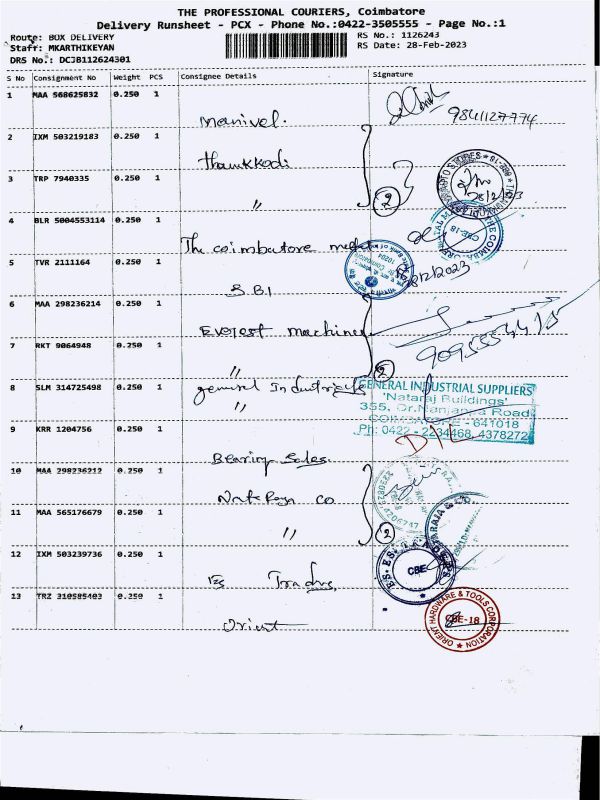 THE PROFESSIONAL COURIERS, Coimbatore
Delivery Runsheet - PCX - Phone No.:0422-3505555 - Page No.:1
Route: BOX DELIVERY
RS No.: 1126243
Staff: MKARTHIKEYAN
RS Date: 28-Feb-2023
DRS No.: DCJB112624301
S No Consignment No Weight PCS Consignee Details Signature
1 MAA 568625832 0.250 1
Manivel.
9841127774
2 IXM 503219183 0.250 1
3 TRP 7940335 0.250 1
"
2
28/2/23
4 BLR 5004553114 0.250 1
The coimbatore
CBE-18
5 TVR 2111164 0.250 1
28/12/2023
S.B.I
6 MAA 298236214 0.250 1
Everest machine
7 RKT 9064948 0.250 1
"
2
8 SLM 314725498 0.250 1
general Industrials
"
GENERAL INDUSTRIAL SUPPLIERS
'Nataraj Buildings'
355, Dr.Nanjappa Road
COIMBATORE - 641018
Ph: 0422 - 2234468, 4378272
9 KRR 1204756 0.250 1
Bearing Sales.
10 MAA 298236212 0.250 1
Co
11 MAA 565176679 0.250 1
"
2
12 IXM 503239736 0.250 1
Es Traders
E.S. TRADERS
CBE
13 TRZ 310585403 0.250 1
Orient
ORIENT HARDWARE & TOOLS CORPORATION
CBE-18